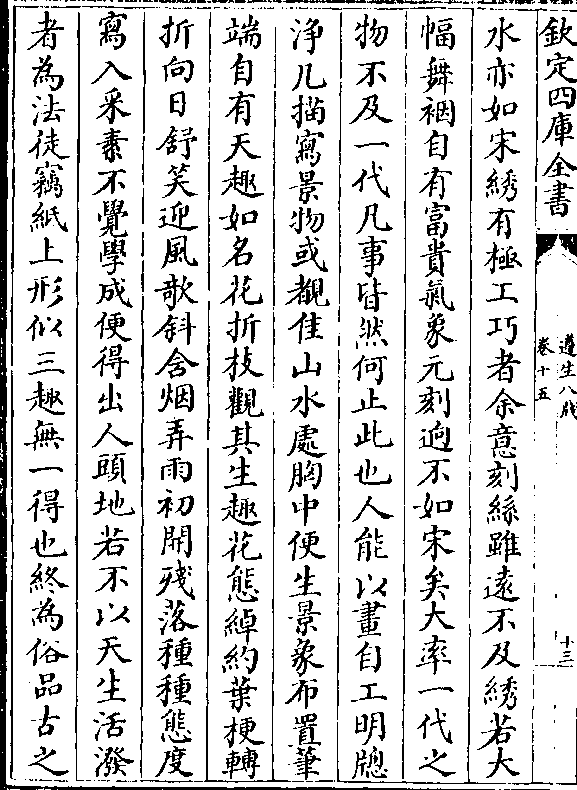 欽定四庫全書
遵生八牋
卷十五
十三
水亦如宋綉有極工巧者余意刻絲雖遠不及綉若大
幅舞裀自有富貴氣象元刻逈不如宋矣大率一代之
物不及一代凡事皆然何止此也人能以畫自工明牕
淨几描寫景物或觀佳山水處胸中便生景象布置筆
端自有天趣如名花折枝觀其生趣花態綽約葉梗轉
折向日舒笑迎風欹斜含烟弄雨初開殘落種種態度
寫入采素不覺學成便得出人頭地若不以天生活潑
者為法徒竊紙上形似三趣無一得也終為俗品古之